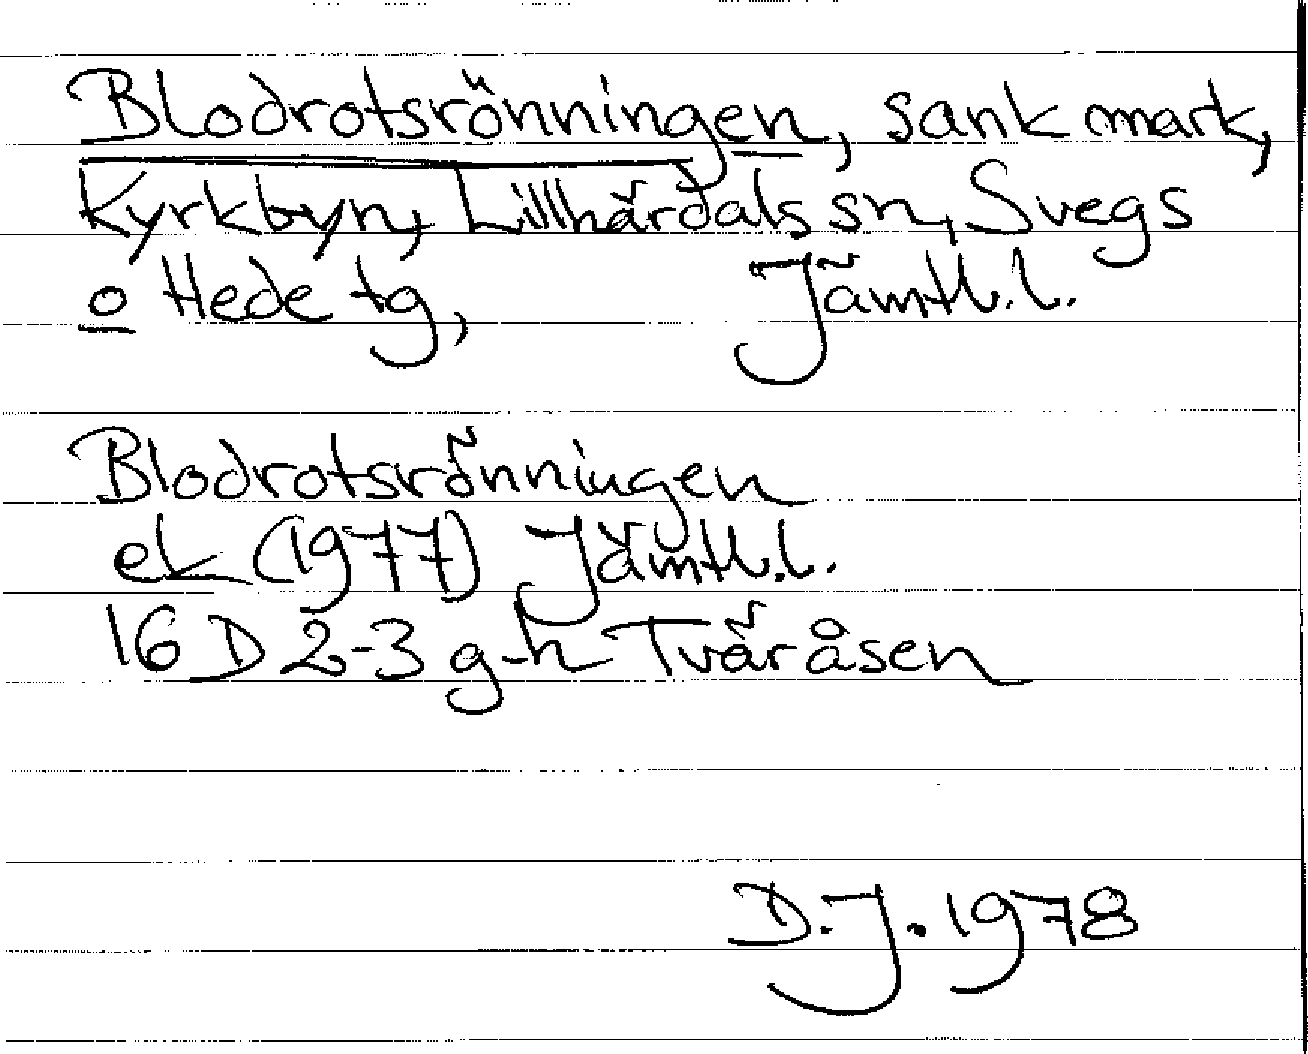 Blodrotsrönningen, sank mark,
Kyrkbyn, Lillhärdals sn, Svegs
o Hede tg, Jämtl.l.
Blodrotsrönningen
ek (1977) Jämtl.l.
16 D 2-3 g-h Tväråsen
D.J. 1978